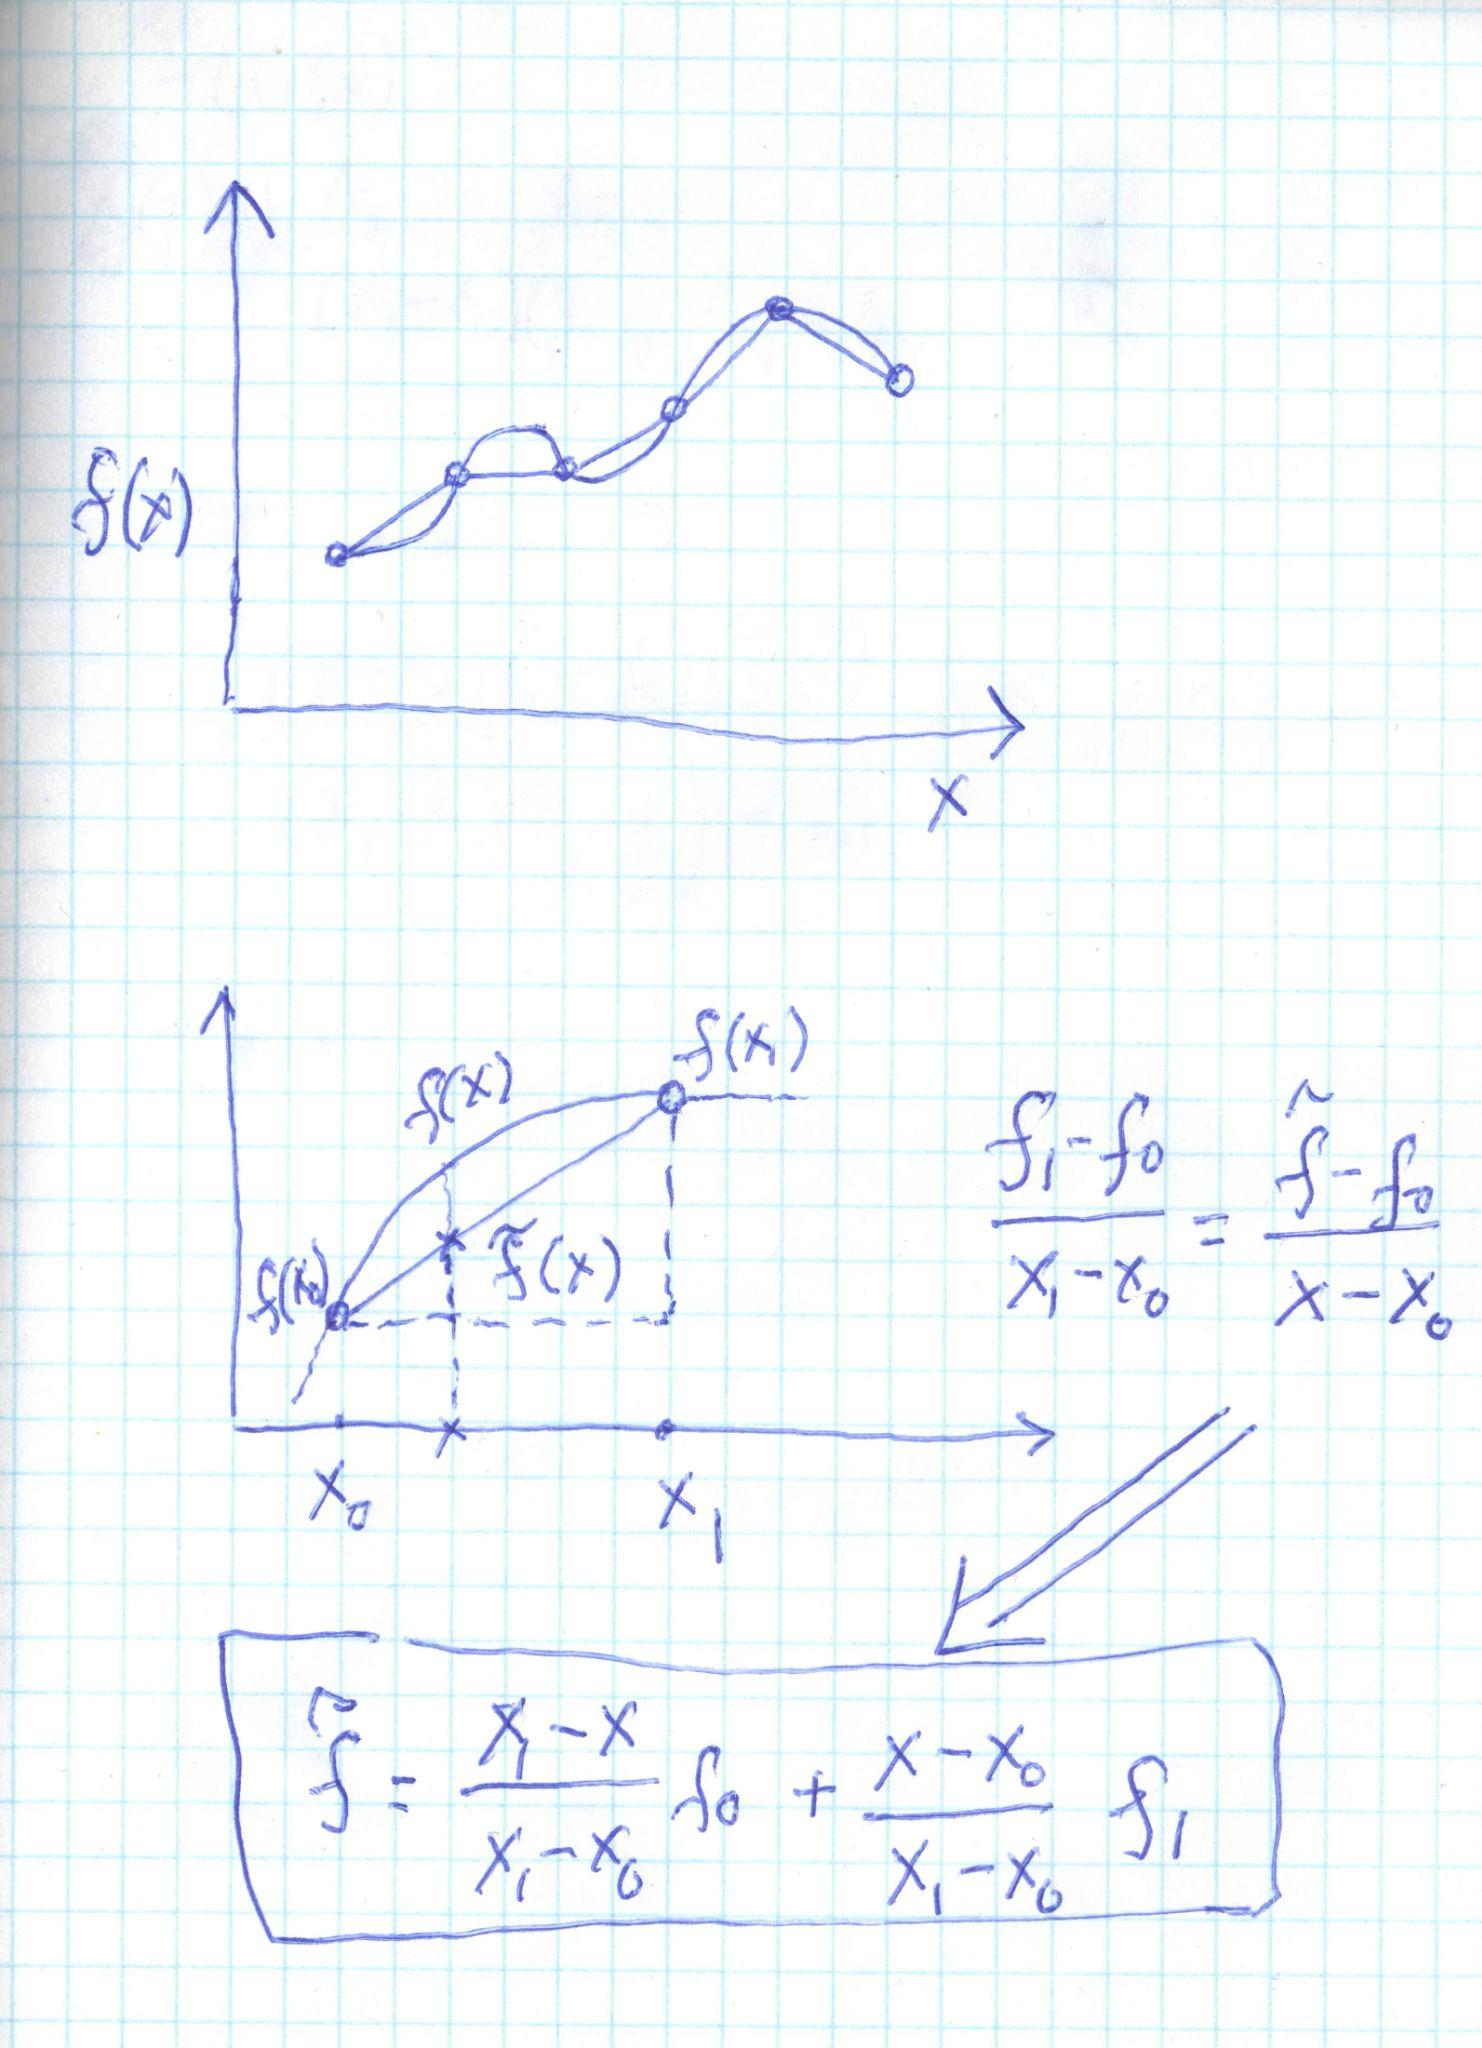 f(x)
x
f(x₁)
f(x)
f̃(x)
f(x₀)
x₀
x₁
(f₁-f₀)/(x₁-x₀) = (f̃-f₀)/(x-x₀)
f̃ = (x₁-x)/(x₁-x₀) f₀ + (x-x₀)/(x₁-x₀) f₁